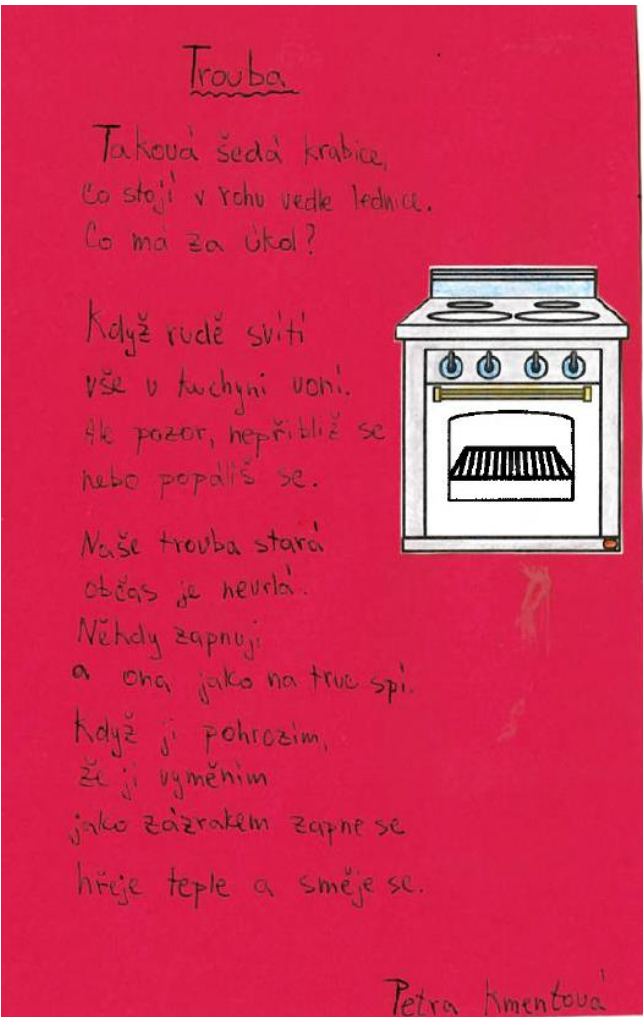 Trouba
Taková šedá krabice,
co stojí v rohu vedle lednice.
Co má za úkol?
Když rudě svítí
vše v kuchyni voní.
Ale pozor, nepřibliž se
nebo popálíš se.
Naše trouba stará
občas je nevrlá.
Někdy zapnu ji
a ona jako na truc spí.
Když jí pohrozím,
že ji vyměním
jako zázrakem zapne se
hřeje teple a směje se.
Petra Kmentová